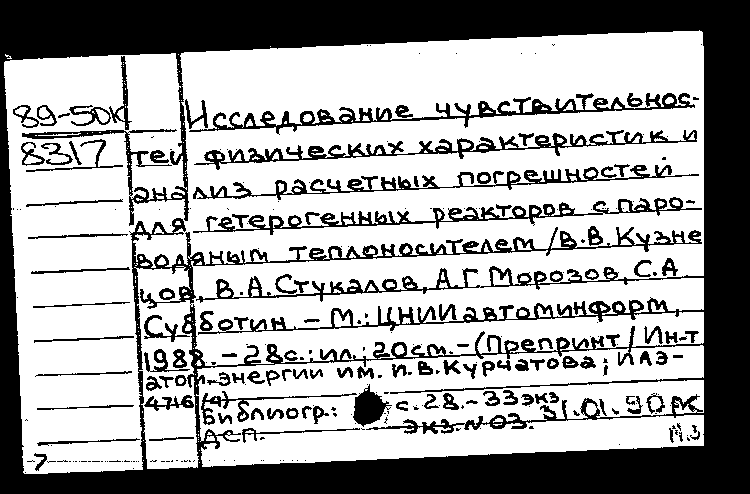 89-50к Исследование чувствительнос-
8317 тей физических характеристик и
анализ расчетных погрешностей
для гетерогенных реакторов с паро-
водяным теплоносителем /В.В.Кузне
цов, В.А.Стукалов, А.Г.Морозов, С.А.
Субботин. – М.: ЦНИИавтоминформ,
1988. – 28с.: ил.; 20см. – (Препринт / Ин-т
атом. энергии им. И.В.Курчатова; ИАЭ-
4716 (4)
Библиогр.: с.28. – 33экз
ДСП. экз. N 03. 31.01.90РК
М.З
7